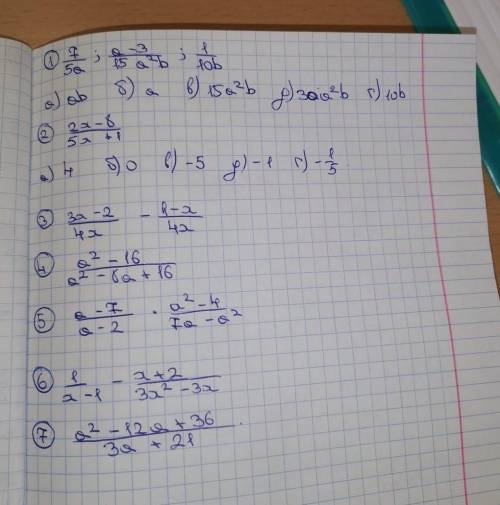 ① 7/5a ; a-3/15a²b ; 1/10b
а) ab б) a в) 15a²b д) 30a²b г) 10b
② 2x-8/5x+1
а) 4 б) 0 в) -5 д) -1 г) -1/5
③ 3x-2/4x - 1-x/4x
④ a²-16/a²-8a+16
⑤ a-7/a-2 · a²-4/7a-a²
⑥ 1/x-1 - x+2/3x²-3x
⑦ a²-12a+36/3a+21